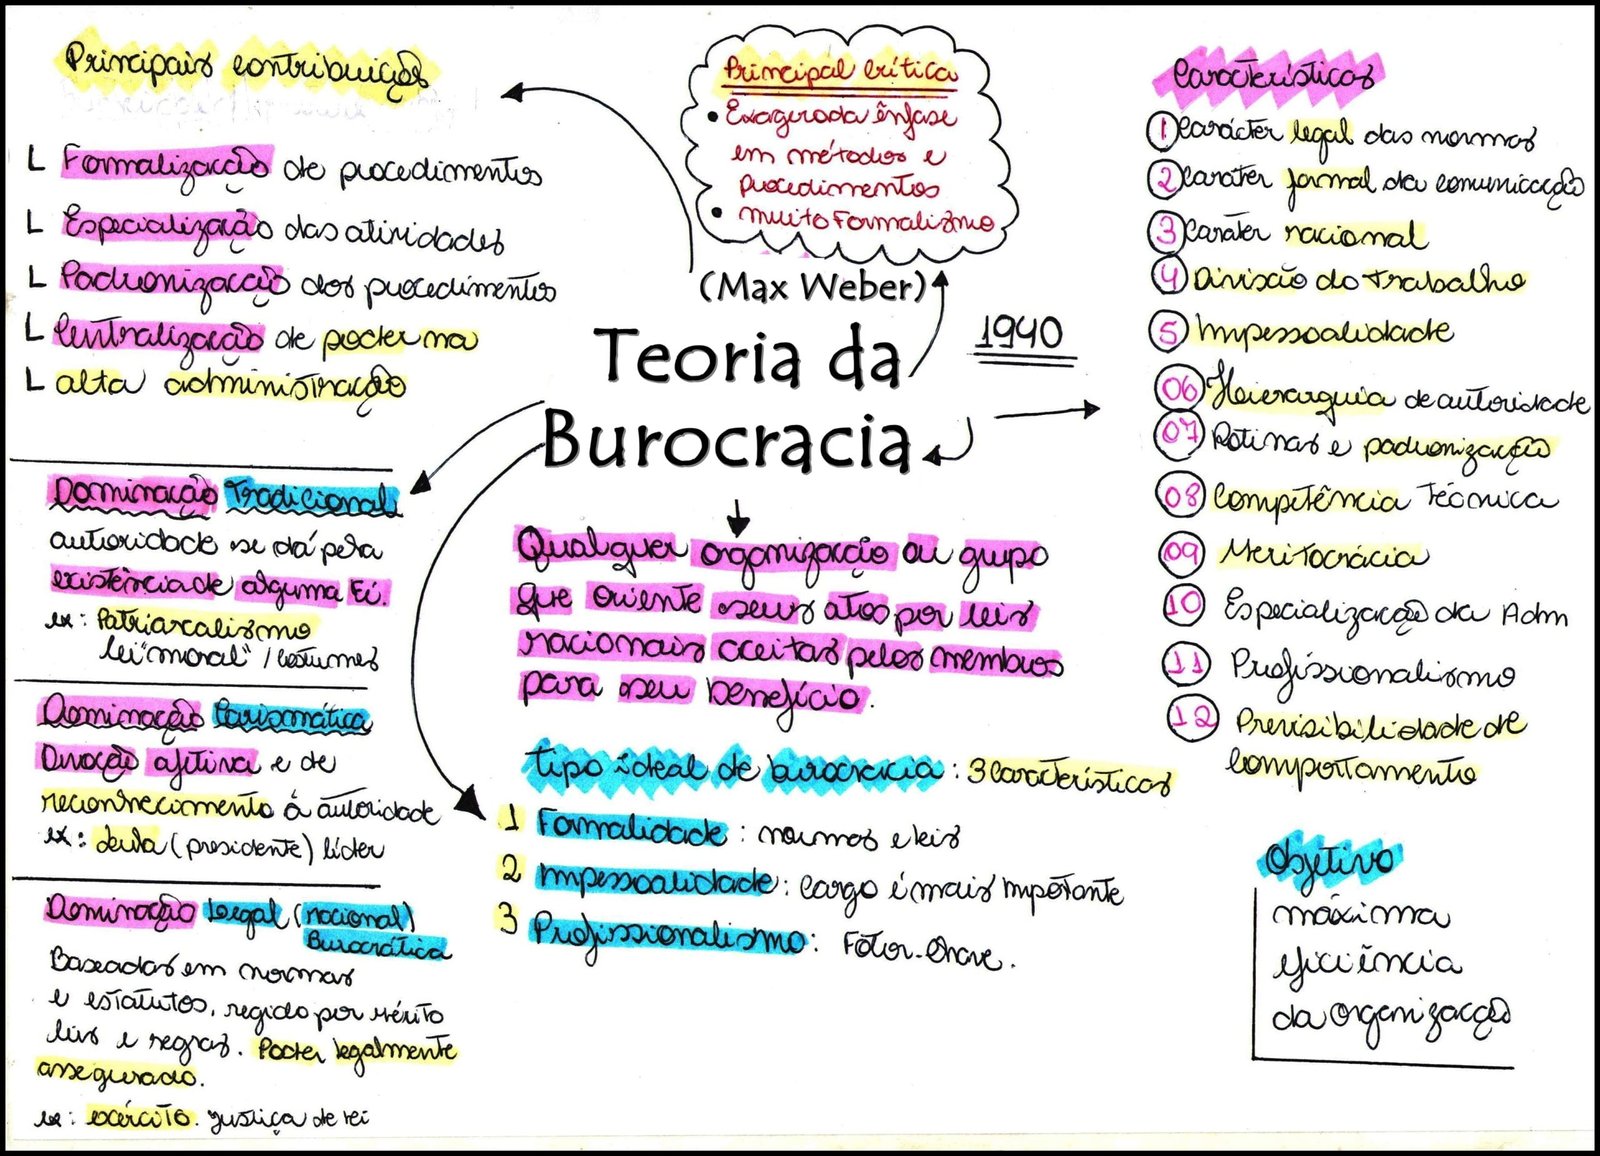 Principais contribuições
L Formalização de procedimentos
L Especialização das atividades
L Padronização dos procedimentos
L Centralização de poder na
L alta administração
Principal crítica
• Exagerada ênfase
em métodos e
procedimentos
• muito Formalismo
(Max Weber)
Teoria da
Burocracia
1940
Qualquer organização ou grupo
que oriente seus atos por leis
racionais aceitas pelos membros
para seu benefício.
Tipo ideal de burocracia: 3 características
1 Formalidade: normas e leis
2 Impessoalidade: cargo é mais importante
3 Profissionalismo: Fator-chave.
Dominação Tradicional
autoridade se dá pela
existência de alguma
ex: Patriarcalismo
lei "moral" / costumes
Dominação Carismática
Devoção afetiva e de
reconhecimento á autoridade
ex: (presidente) líder
Dominação Legal (racional)
Burocrática
Baseadas em normas
e estatutos, regido por mérito
leis e regras. Poder legalmente
assegurado.
ex: exército. justiça de lei
Características
1 Carácter legal das normas
2 Caráter formal da comunicação
3 Caráter racional
4 Divisão do Trabalho
5 Impessoalidade
06 Hierarquia de autoridade
07 Rotinas e padronização
08 Competência Técnica
09 Meritocrácia
10 Especialização da Adm
11 Profissionalismo
12 Previsibilidade de
Comportamento
Objetivo
máxima
eficiência
da organização